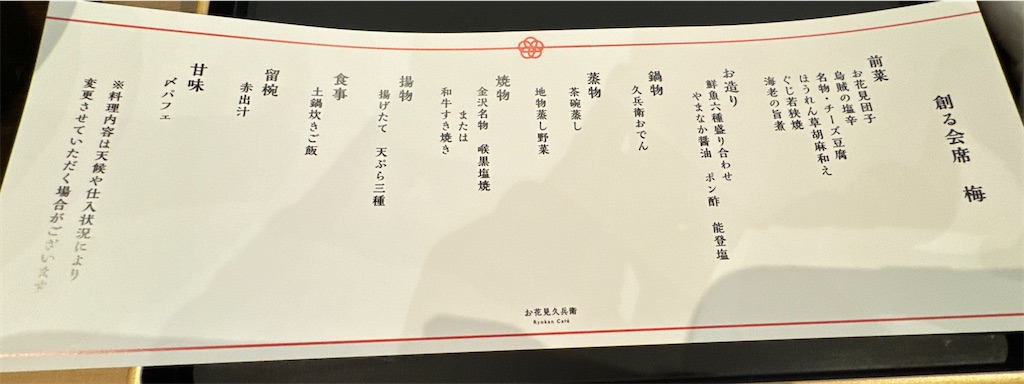 創る会席 梅
前菜
お花見団子
烏賊の塩辛
名物・チーズ豆腐
ほうれん草胡麻和え
ぐじ若狭焼
海老の旨煮
お造り
鮮魚六種盛り合わせ
やまなか醤油 ポン酢 能登塩
鍋物
久兵衛おでん
蒸物
茶碗蒸し
地物蒸し野菜
焼物
金沢名物 喉黒塩焼
または
和牛すき焼き
揚物
揚げたて 天ぷら三種
食事
土鍋炊きご飯
留椀
赤出汁
甘味
〆パフェ
※料理内容は天候や仕入状況により
変更させていただく場合がございます
お花見久兵衛
Ryokan Café